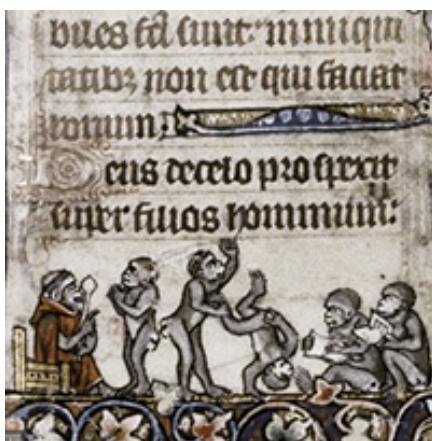 biles fc̄i sunt: in iniqui
tatibꝫ non est qui faciat
bonum.
Deus de celo prospexit
super filios hominum: